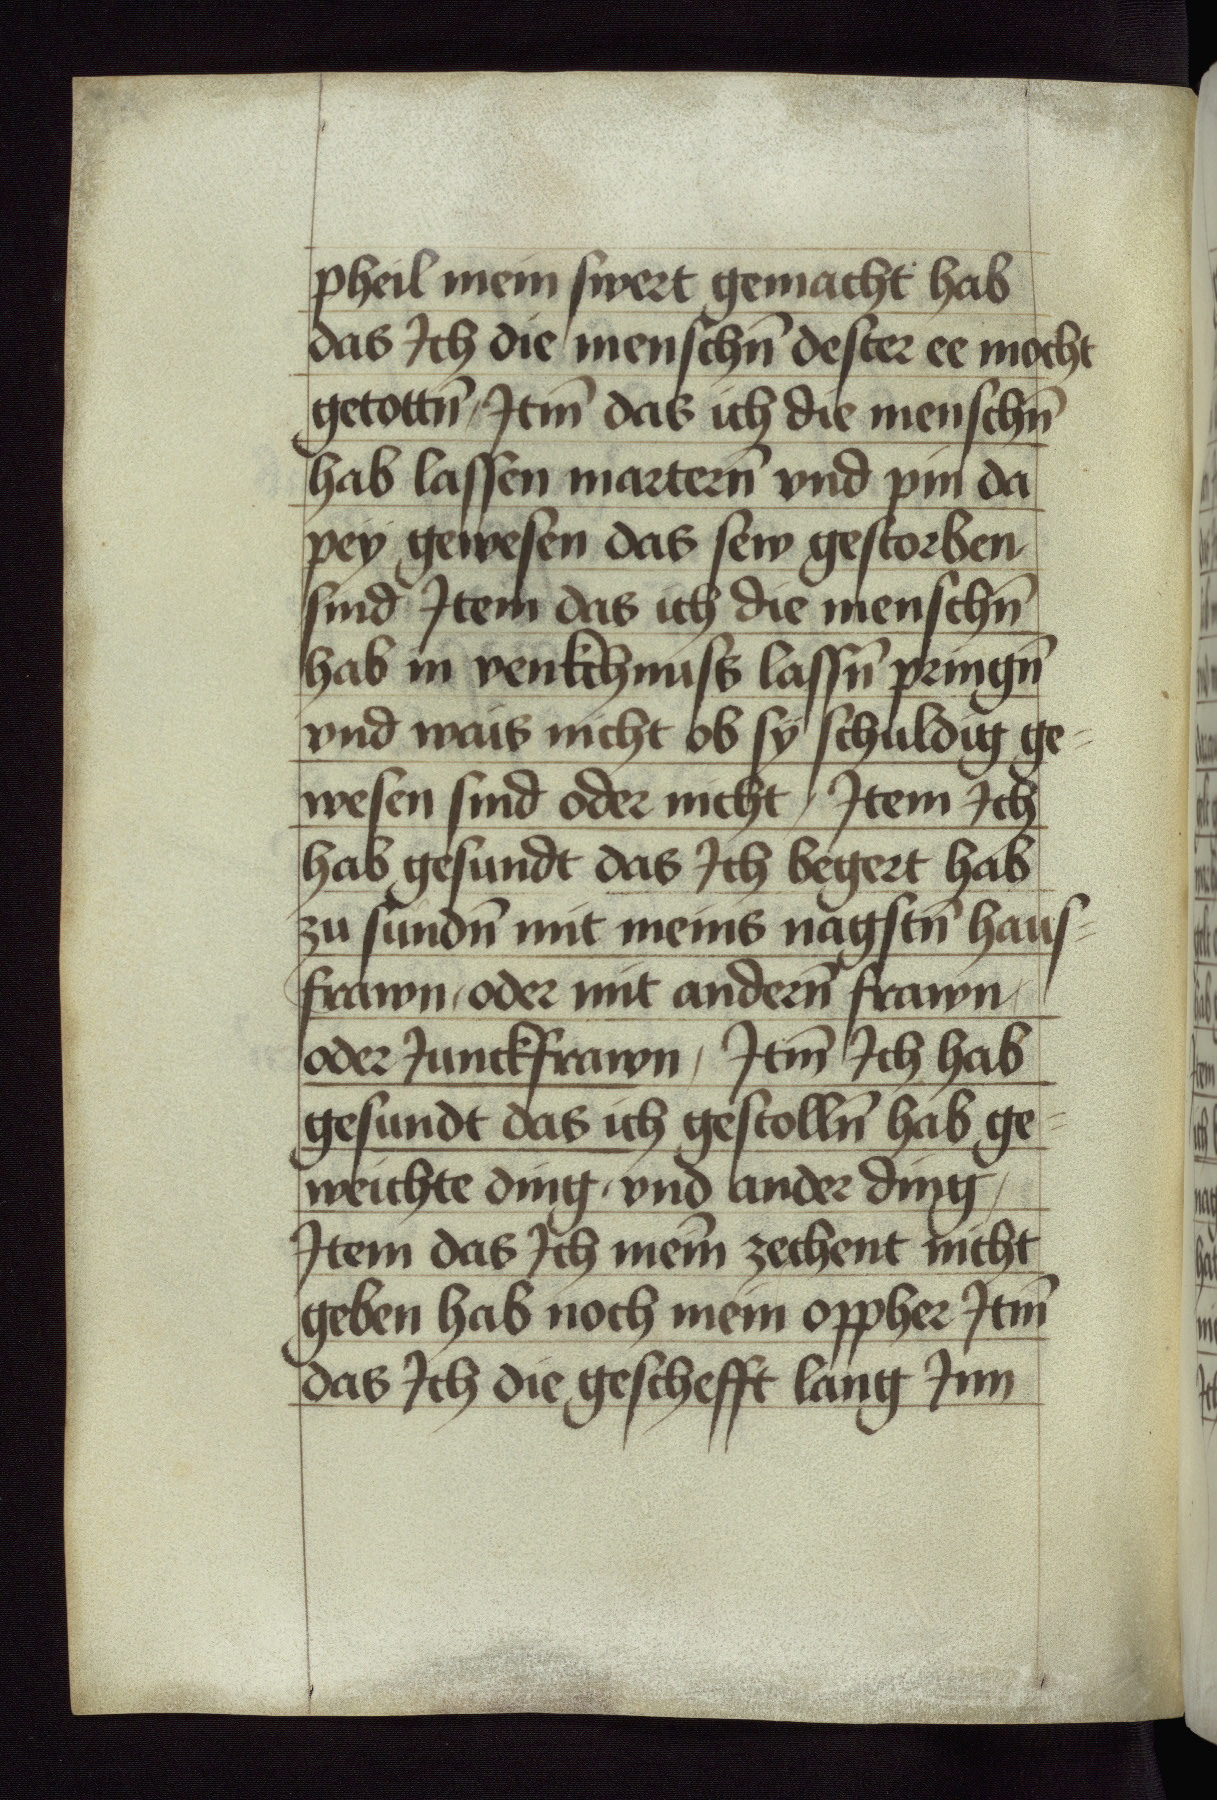 pheil mein swert gemacht hab
das Ich die menschn̄ dester ee mocht
getottn̄ / Itm̄ das ich die menschn̄
hab lassen martern̄ vnd pin da
pey gewesen das sew gestorben
sind Item das ich die menschn̄
hab in venkchnuss lassn̄ pringn̄
vnd wais nicht ob sÿ schuldig ge=
wesen sind oder nicht / Item Ich
hab gesundt das Ich begert hab
zu sundn̄ mit meins nagstn̄ haus=
frawn / oder mit andern̄ frawn /
oder Junckfrawn / Itm̄ Ich hab
gesundt das ich gestolln̄ hab ge=
weichte ding / vnd ander ding /
Item das Ich mein̄ zechent nicht
geben hab noch mein oppher Itm̄
das Ich die geschefft lang Inn